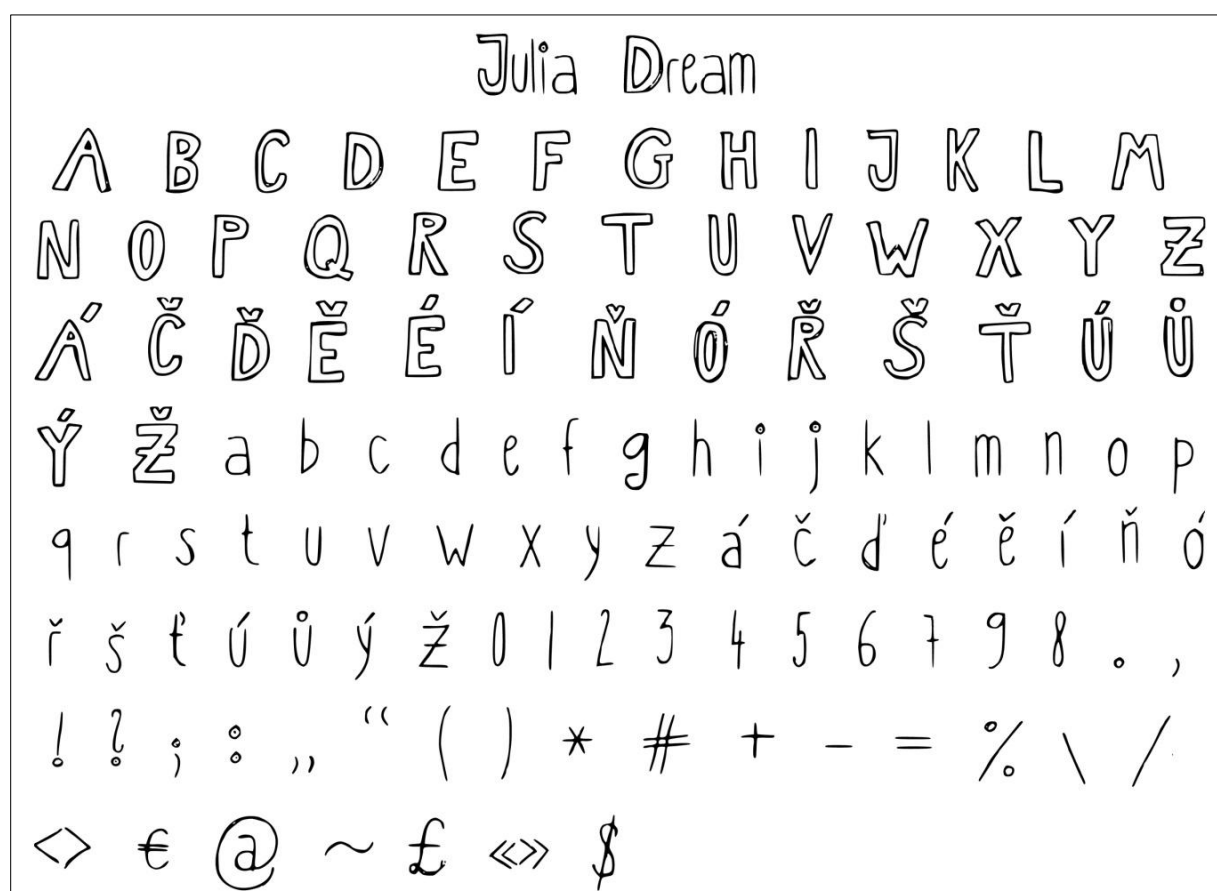 Julia Dream
A B C D E F G H I J K L M
N O P Q R S T U V W X Y Z
Á Č Ď Ě É Í Ň Ó Ř Š Ť Ú Ů
Ý Ž a b c d e f g h i j k l m n o p
q r s t u v w x y z á č ď é ě í ň ó
ř š ť ú ů ý ž 0 1 2 3 4 5 6 7 9 8 . ,
! ? ; : „ “ ( ) * # + - = % \ /
<> € @ ~ £ «» $